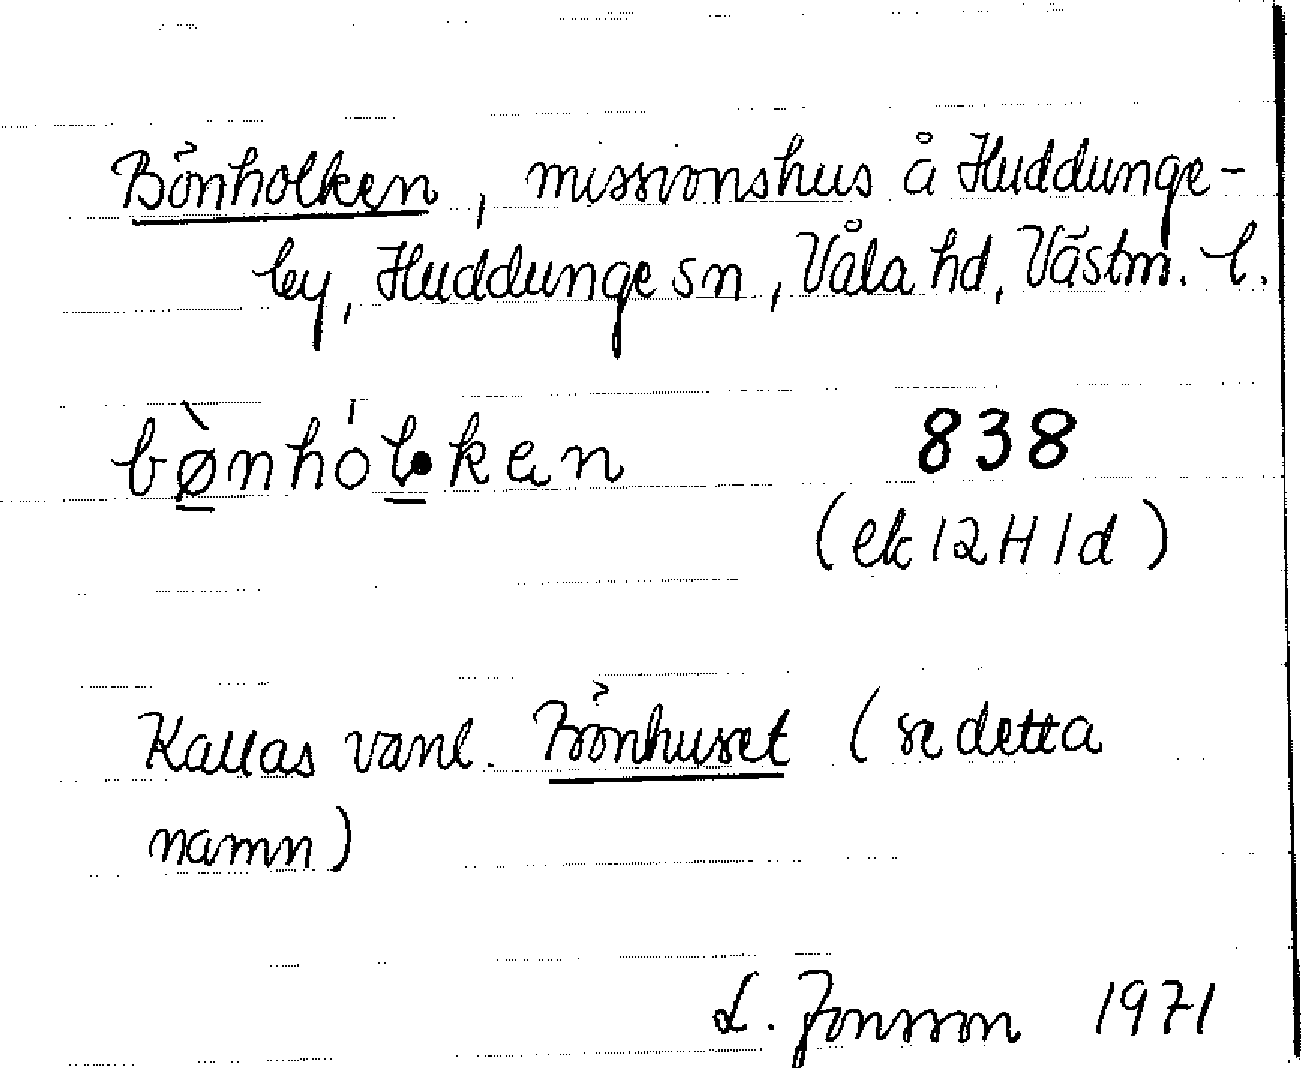 Bönholken, missionshus å Huddunge-
by, Huddunge sn, Våla hd, Västm. l.
bø̀nhól·ken 838
(ek 12H1d)
Kallas vanl. Bönhuset (se detta
namn)
L. Jonsson 1971